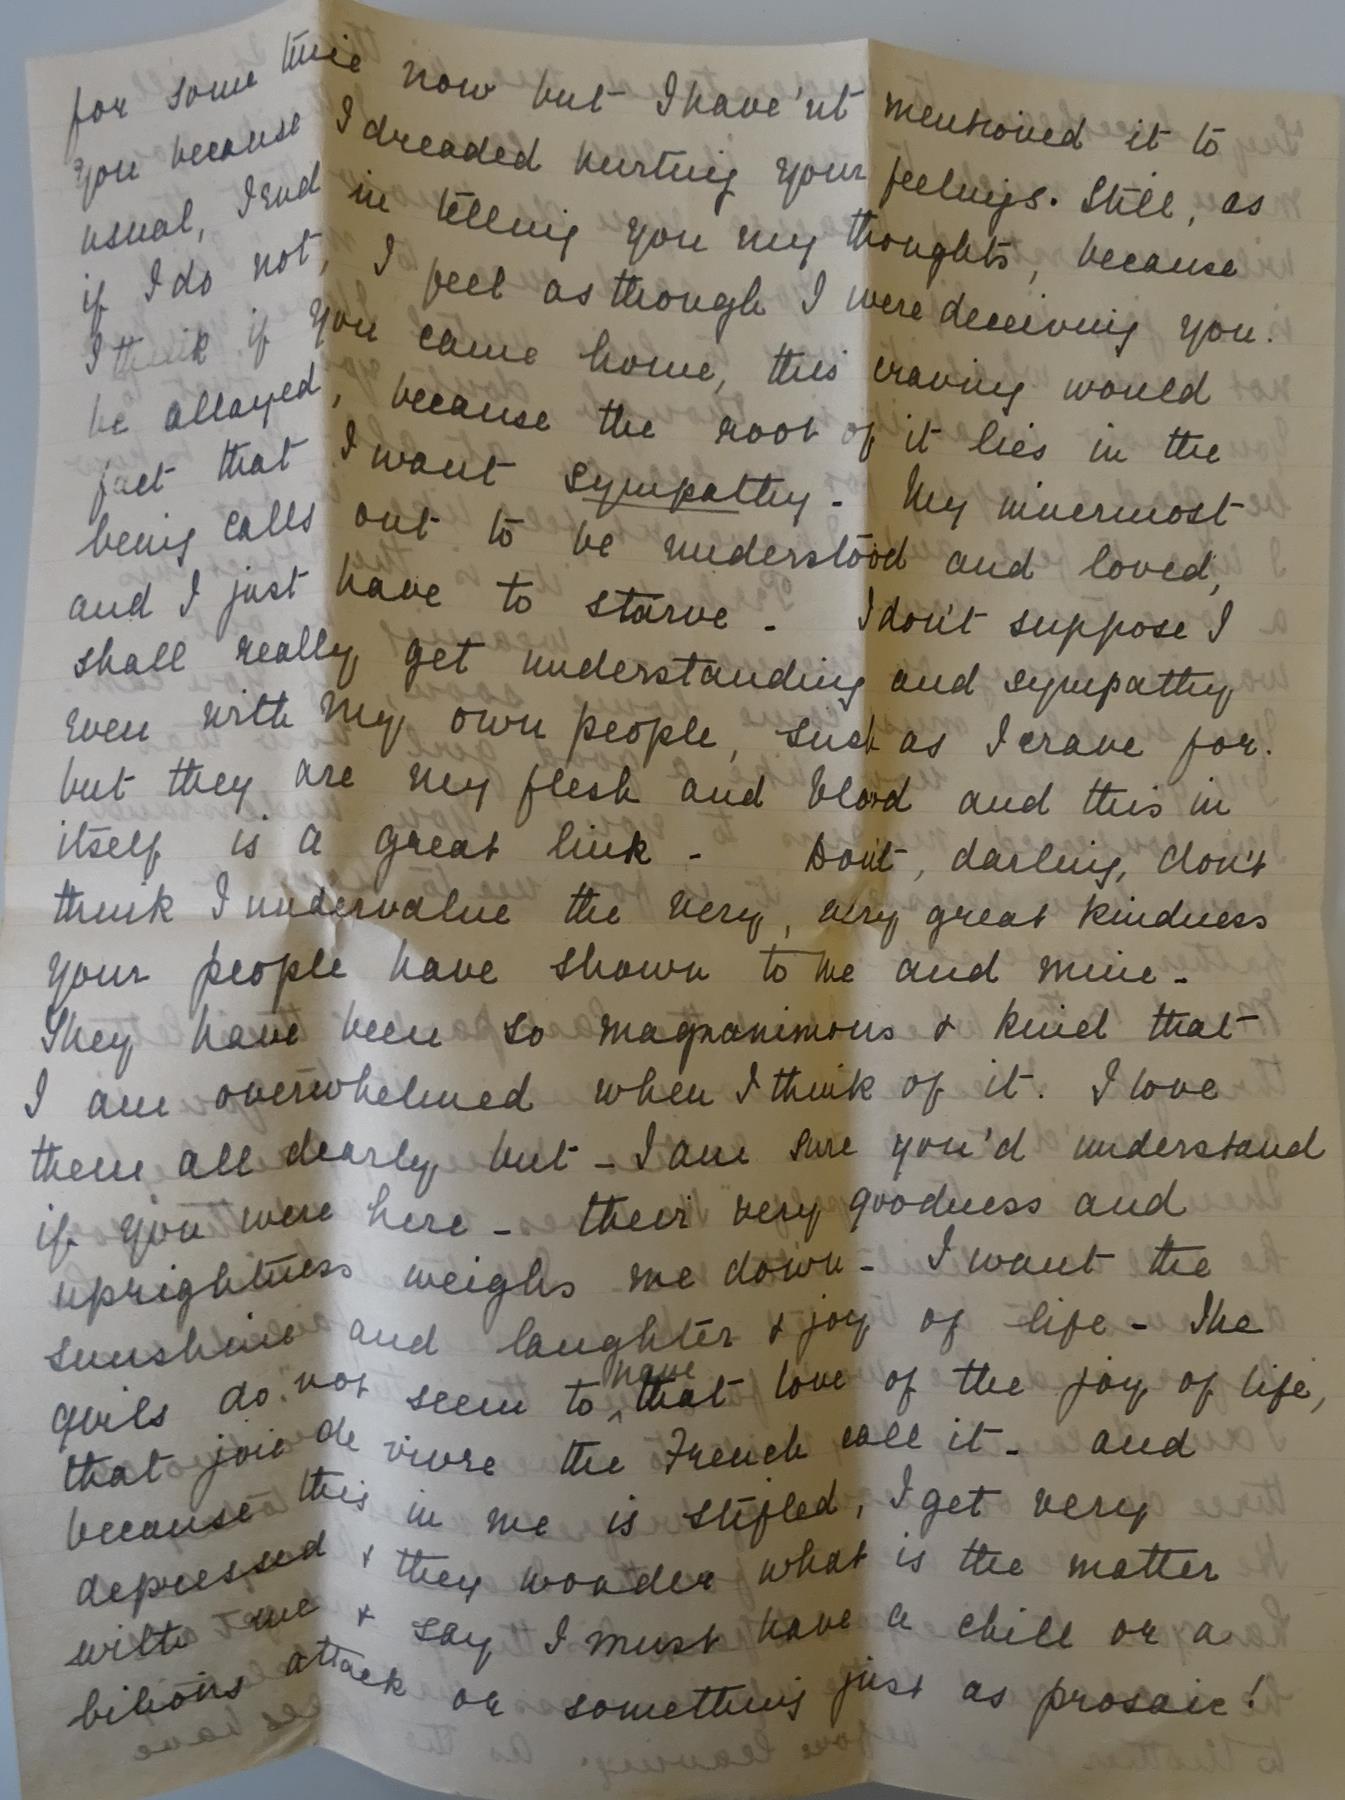 for some time now but I have'nt mentioned it to
you because I dreaded hurting your feelings. Still, as
usual, I end in telling you my thoughts, because
if I do not, I feel as though I were deceiving you.
I think if you came home, this craving would
be allayed, because the root of it lies in the
fact that I want sympathy - My innermost
being calls out to be understood and loved,
and I just have to starve - I don't suppose I
shall really get understanding and sympathy
even with my own people, such as I crave for.
but they are my flesh and blood and this in
itself is a great link - Don't, darling, don't
think I undervalue the very, very great kindness
your people have shown to me and mine -
They have been so magnanimous & kind that
I am overwhelmed when I think of it. I love
them all dearly but - I am sure you'd understand
if you were here - their very goodness and
uprightness weighs me down - I want the
sunshine and laughter & joy of life - The
girls do not seem to have that love of the joy of life,
that joie de vivre the French call it - and
because this in me is stifled, I get very
depressed & they wonder what is the matter
with me & say I must have a chill or a
bilious attack or something just as prosaic!